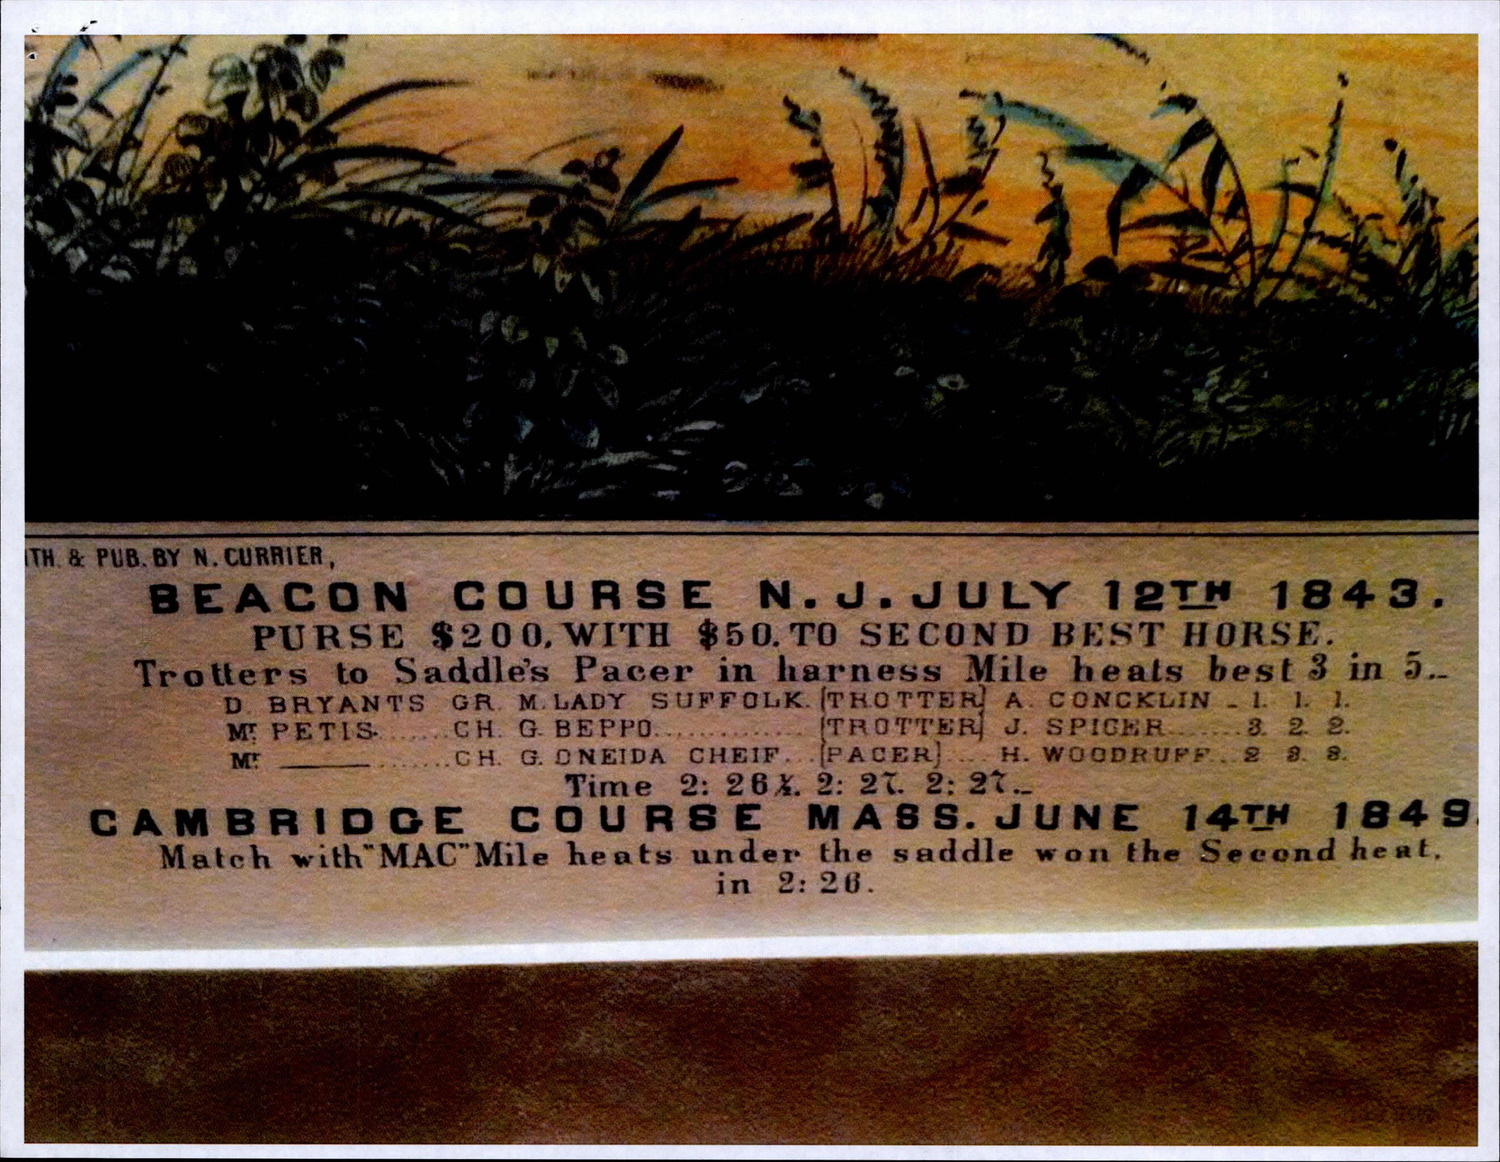 ITH. & PUB. BY N. CURRIER,
BEACON COURSE N.J. JULY 12TH 1843.
PURSE $200, WITH $50. TO SECOND BEST HORSE.
Trotters to Saddle's Pacer in harness Mile heats best 3 in 5..
D. BRYANTS GR. M. LADY SUFFOLK. [TROTTER] A. CONCKLIN - 1. 1. 1.
Mr. PETIS.......CH. G. BEPPO.............. [TROTTER] J. SPICER.......3. 2. 2.
Mr. ———........CH. G. ONEIDA CHEIF... [PACER] ... H. WOODRUFF...2 3. 3.
Time 2: 26½. 2: 27. 2: 27..
CAMBRIDGE COURSE MASS. JUNE 14TH 1849.
Match with "MAC" Mile heats under the saddle won the Second heat,
in 2: 26.